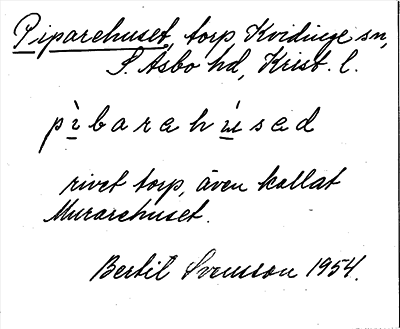 Piparehuset, torp Kvidinge sn,
S. Åsbo hd, Krist. l.
pìbarahùsad
rivet torp, även kallat
Murarehuset.
Bertil Svensson 1954.